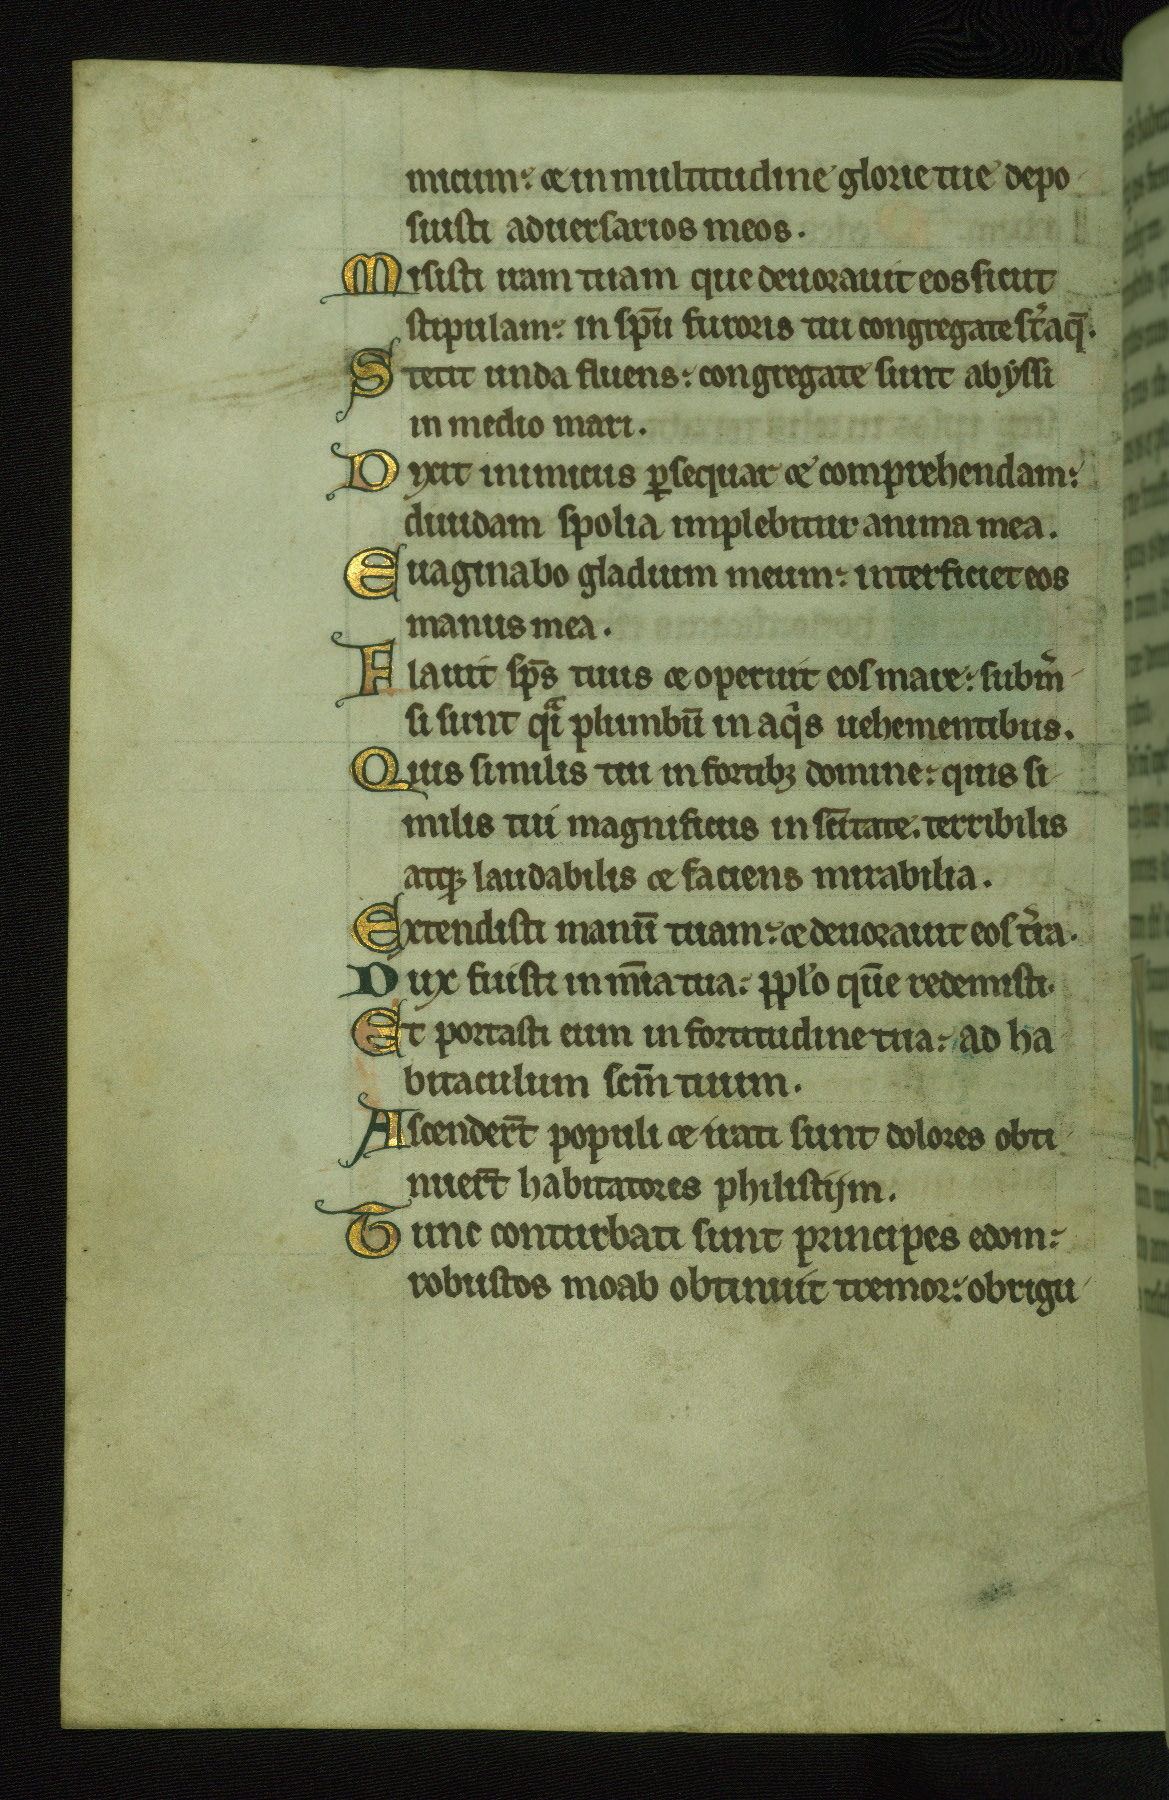 micum: et in multitudine glorie tue depo
suisti aduersarios meos.
Misisti iram tuam que deuorauit eos sicut
stipulam: in sp̄u furoris tui congregate st̾ aq̄.
Stetit unda fluens: congregate sunt abyssi
in medio mari.
Dixit inimicus ꝑsequar et comprehendam:
diuidam spolia implebitur anima mea.
Euaginabo gladium meum: interficiet eos
manus mea.
Flauit sp̄s tuus et operuit eos mare: subm̾
si sunt qͣi plumbū in aqͥs uehementibus.
Quis similis tui in fortibꝫ domine: quis si
milis tui magnificus in sc̄itate. terribilis
atqꝫ laudabilis et faciens mirabilia.
Extendisti manū tuam: et deuorauit eos t̾ra.
Dux fuisti in m̄ia tua: pp̄lo quē redemisti.
Et portasti eum in fortitudine tua: ad ha
bitaculum scm̄ tuum.
Ascender̄t populi et irati sunt dolores obti
nuer̄t habitatores philistijm.
Tunc conturbati sunt principes edom:
robustos moab obtinuit tremor: obrigu